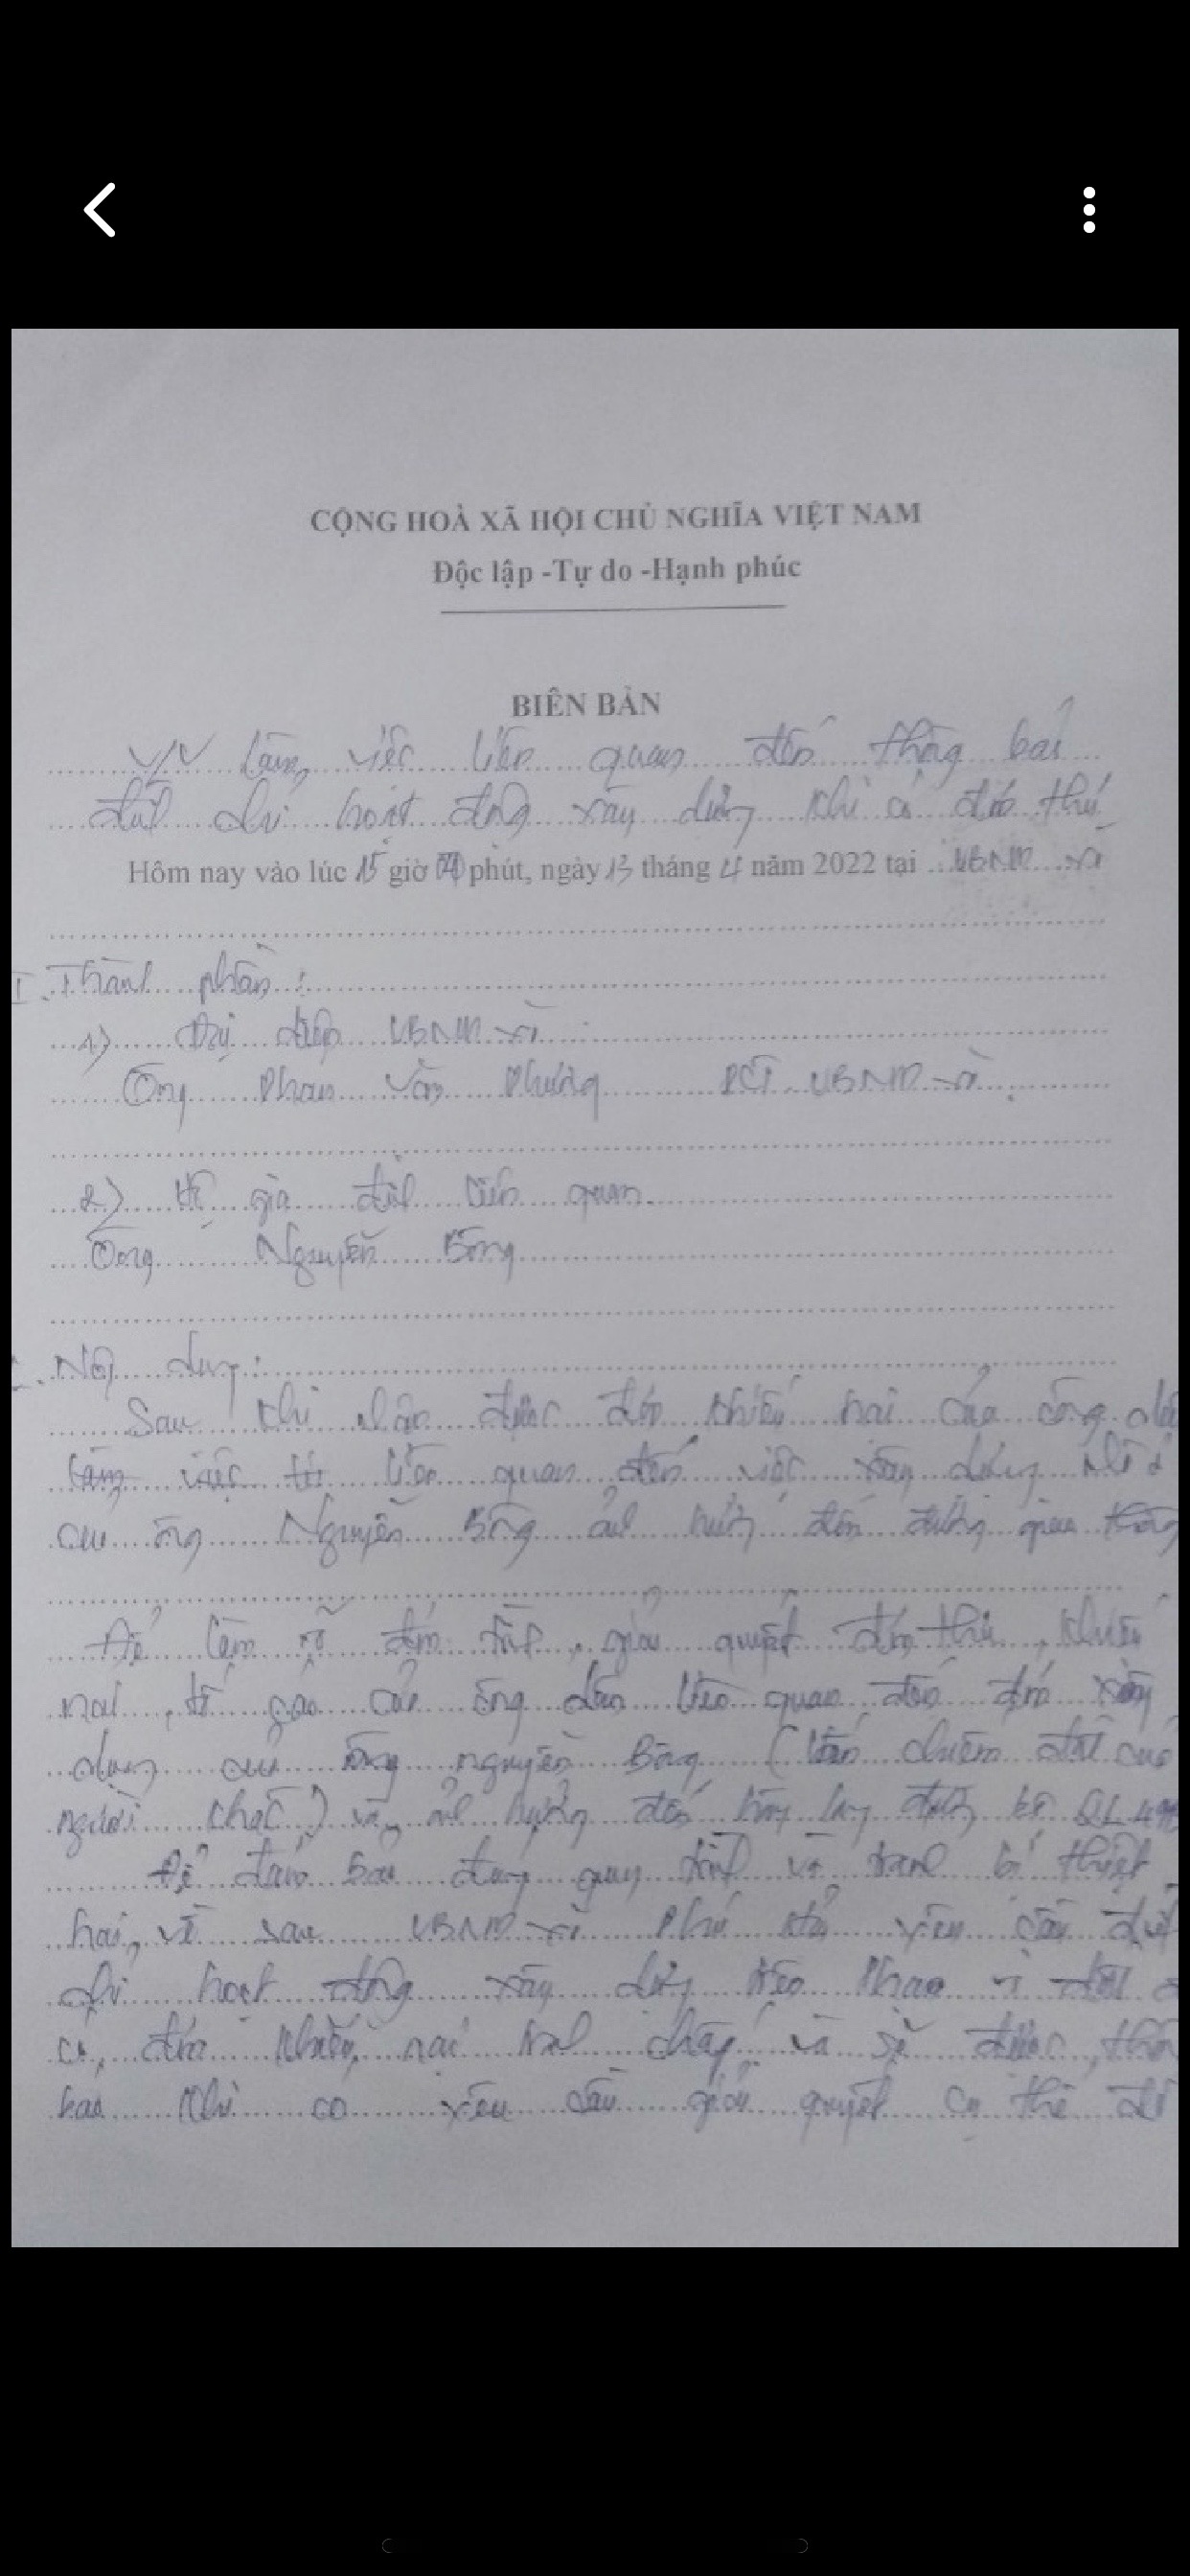 CỘNG HOÀ XÃ HỘI CHỦ NGHĨA VIỆT NAM
Độc lập -Tự do -Hạnh phúc
BIÊN BẢN
V/V Làm việc liên quan đến thông báo
đình chỉ hoạt động xây dựng khi có đơn thư
Hôm nay vào lúc 15 giờ phút, ngày 13 tháng 4 năm 2022 tại UBND xã
I. Thành phần :
1) Đại diện UBND xã :
Ông Phan Văn Phương PCT UBND xã.
2) Hộ gia đình liên quan.
Ông Nguyễn Bông
Nội dung :
Sau khi nhận được đơn khiếu nại của công
liên quan đến việc xây dựng
của ông Nguyễn Bông ảnh hưởng đến đường giao thông
Để làm rõ giải quyết đơn thư, khiếu
nại, tố cáo của công dân liên quan đến xây
dựng của ông nguyễn Bông ( lấn chiếm đất của
người khác ) và ảnh hưởng đến đường QL
Để đảm bảo đúng quy trình và tránh bị thiệt
hại, về sau UBND xã yêu cầu đình
chỉ hoạt động xây dựng
có đơn khiếu nại tranh chấp và sẽ được
báo khi có yêu cầu giải quyết cụ thể